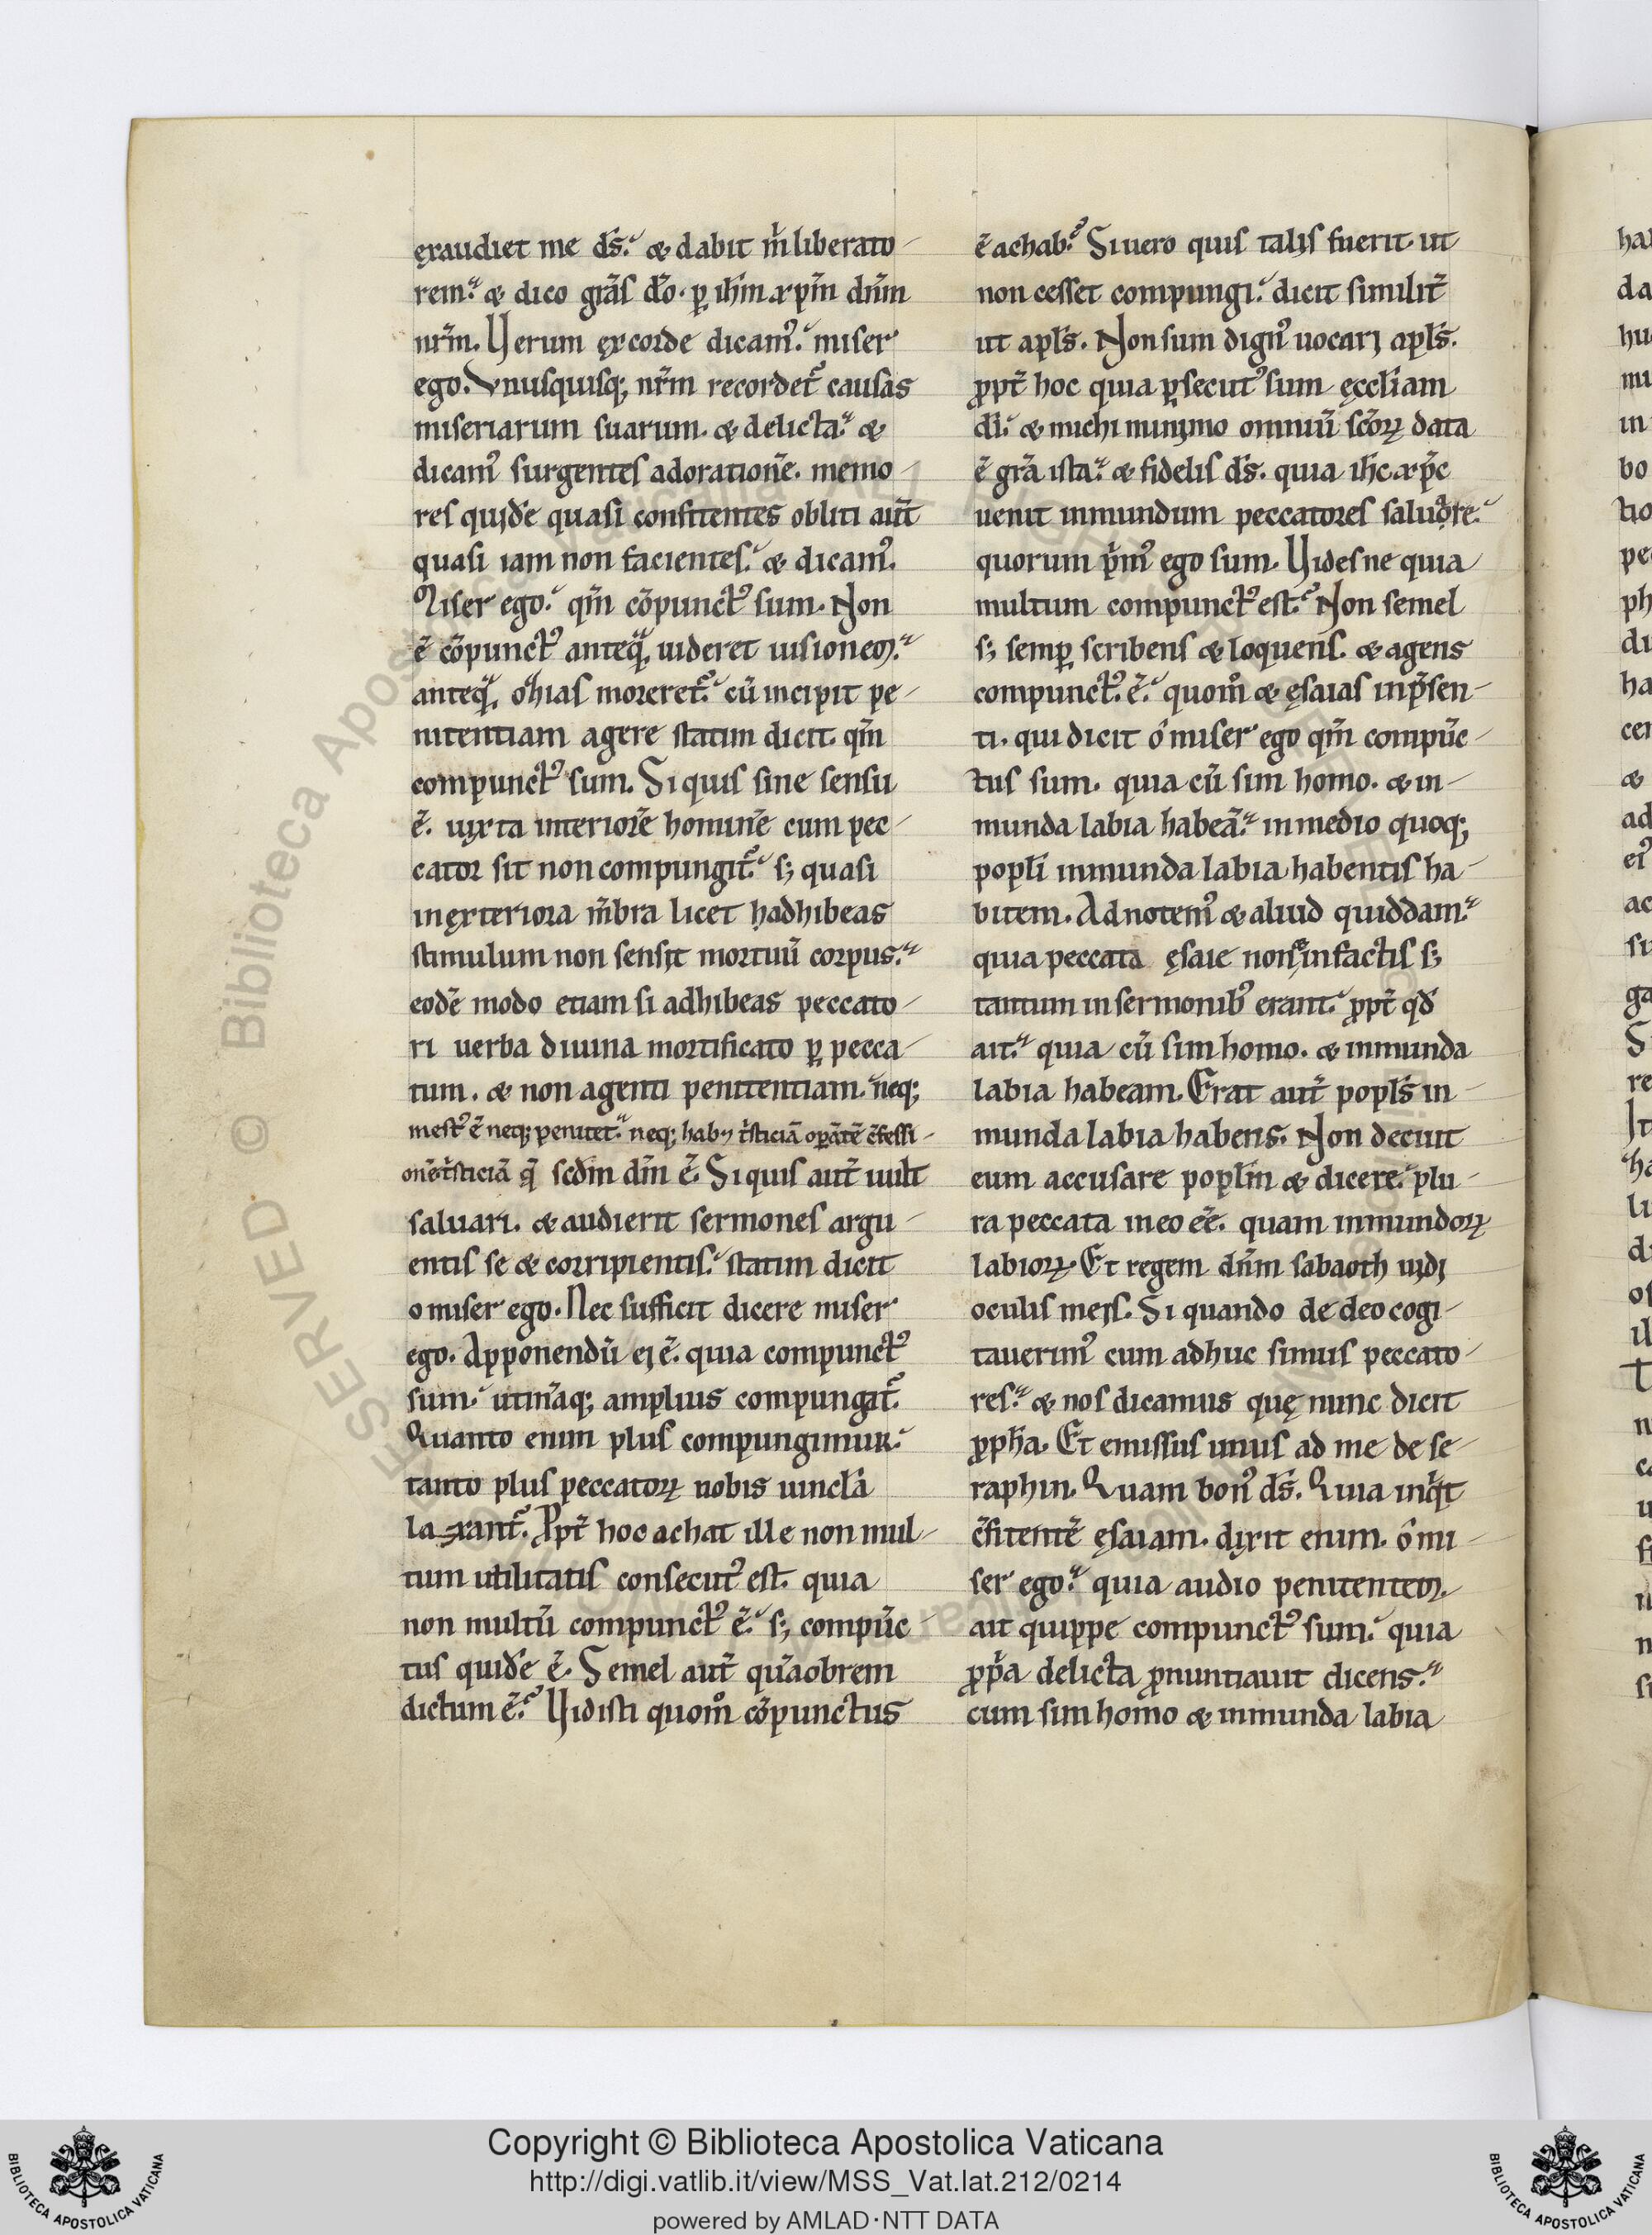 exaudiet me ds̄. & dabit m̄ liberato-
rem. & dico grās dō. ꝑ ihm̄ xp̄m dnm̄
nrm̄. Verum ex corde dicamꝰ. miser
ego. Vnusquisq; nrm̄ recordet᷑ causas
miseriarum suarum. & delicta. &
dicamꝰ surgentes ad orationē. memo-
res quidē quasi confitentes obliti aut̄
quasi iam non facientes. & dicamꝰ.
Miser ego. qm̄ cōpunctꝰ sum. Non
ē cōpunctꝰ anteq̄. uideret uisionem.
anteq̄. ohias moreret᷑. cū incipit pe-
nitentiam agere statim dicit. qm̄
compunctꝰ sum. Si quis sine sensu
ē. iuxta interiorē hominē cum pec-
cator sit non compungit᷑. s; quasi
in exteriora mb̄ra licet hadhibeas
stimulum non sensit mortuū corpus.
eodē modo etiam si adhibeas peccato-
ri uerba diuina mortificato ꝑ pecca-
tum. & non agenti penitentiam. neq;
mestꝰ ē neq; penitet. neq; habꝫ tsticiā oꝑātē c̄fessi-
onē tsticiā q̄ scd̄m dm̄ ē. Si quis aut̄ uult
saluari. & audierit sermones argu-
entis se & corripientis. statim dicit
o miser ego. Nec sufficit dicere miser
ego. Apponendū ei ē. quia compunctꝰ
sum. utināq; amplius compungat᷑.
Quanto enim plus compungimur.
tanto plus peccatoꝝ nobis uincl̄a
laxant᷑. Ppt̄ hoc achat ille non mul-
tum utilitatis consecutꝰ est. quia
non multū compunctꝰ ē. s; compūc-
tus quidē ē. Semel aut̄ quāobrem
dictum ē. Vidisti quom̊ cōpunctus
ē achab. Si uero quis talis fuerit. ut
non cesset compungi. dicit similit̄
ut apl̄s. Non sum dignꝰ uocari apl̄s.
ꝓpt̄ hoc quia ꝑsecutꝰ sum ęccl̄iam
dī. & michi minimo omniū scōꝝ data
ē grā ista. & fidelis ds̄. quia ihc̄ xp̄c
uenit in mundum peccatores saluare.
quorum pͥmꝰ ego sum. Videsne quia
multum compunctꝰ est. Non semel
s; semꝑ scribens & loquens. & agens
compunctꝰ. ē. quom̊ & ęsaias in p̄sen-
ti. qui dicit ô miser ego qm̄ compūc-
tus sum. quia cū sim homo. & in-
munda labia habeā. in medio quoq;
popl̄i inmunda labia habentis ha-
bitem. Adnotemꝰ & aliud quiddam.
quia peccata ęsaie non in factis s;
tantum in sermonibꝰ erant. ꝓpt̄ qd̄
ait. quia cū sim homo. & inmunda
labia habeam. Erat aut̄ popl̄s in-
munda labia habens. Non decuit
eum accusare popl̄m & dicere. plu-
ra peccata in eo eē. quam inmundoꝝ
labioꝝ. Et regem dnm̄ sabaoth uidi
oculis meis. Si quando de deo cogi-
tauerimꝰ cum adhuc simus peccato-
res. & nos dicamus quę nunc dicit
ꝓpha. Et emissus unus ad me de se-
raphin. Quam bonꝰ ds̄. Quia inqͥt
c̄fitentē ęsaiam. dixit enim. ô mi-
ser ego. quia audio penitentem.
ait quippe compunctꝰ sum. quia
ꝓpͥa delicta ꝓnuntiauit dicens.
cum sim homo & inmunda labia
Copyright © Biblioteca Apostolica Vaticana
http://digi.vatlib.it/view/MSS_Vat.lat.212/0214
powered by AMLAD·NTT DATA